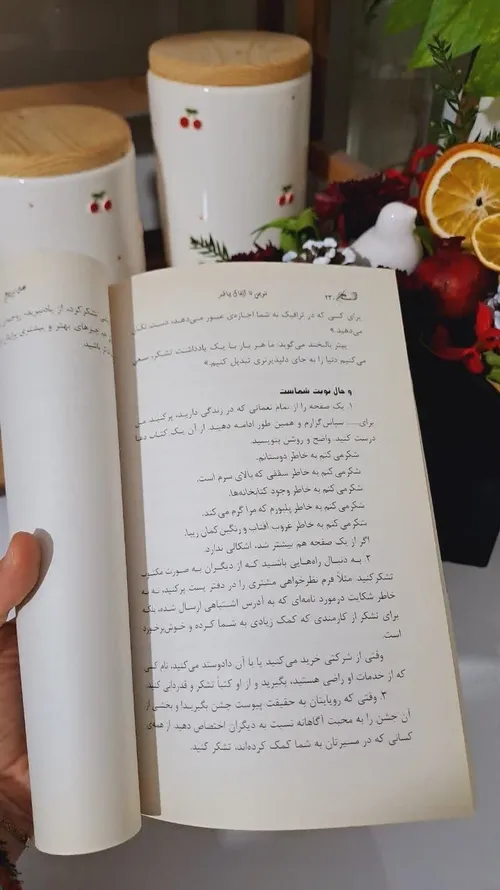 ۲۳۰
برای کسی که در ترافیک به شما اجازه‌ی عبور می‌دهد، دست تکان
می‌دهید.»
پیتر با لبخند می‌گوید: ما هر بار با یک یادداشت تشکر، سعی
می‌کنیم دنیا را به جای دلپذیرتری تبدیل کنیم.»
و حال نوبت شماست
۱. یک صفحه را از تمام نعماتی که در زندگی دارید، پر کنید. من
برای..... سپاس‌گزارم و همین طور ادامه دهید. از آن یک کتاب دعا
درست کنید. واضح و روشن بنویسید.
شکر می کنم به خاطر دوستانم.
شکر می کنم به خاطر سقفی که بالای سرم است.
شکر می کنم به خاطر وجود کتابخانه‌ها.
شکر می کنم به خاطر پلیورم که مرا گرم می کند.
شکر می کنم به خاطر غروب آفتاب و رنگین کمان زیبا.
اگر از یک صفحه هم بیشتر شد، اشکالی ندارد.
۲. به دنبال راه‌هایی باشید که از دیگران به صورت مکتوب
تشکر کنید. مثلاً فرم نظرخواهی مشتری را در دفتر پست پر کنید، نه به
خاطر شکایت درمورد نامه‌ای که به آدرس اشتباهی ارسال شده، بلکه
برای تشکر از کارمندی که کمک زیادی به شما کرده و خوش‌برخورد
است.
وقتی از شرکتی خرید می کنید یا با آن دادوستد می‌کنید، نام کسی
که از خدمات او راضی هستید، بگیرید و از او کتباً تشکر و قدردانی کنید.
۳. وقتی که رویایتان به حقیقت پیوست جشن بگیرید! و بخشی از
آن جشن را به محبت آگاهانه نسبت به دیگران اختصاص دهید. از همه‌ی
کسانی که در مسیرتان به شما کمک کرده‌اند، تشکر کنید.